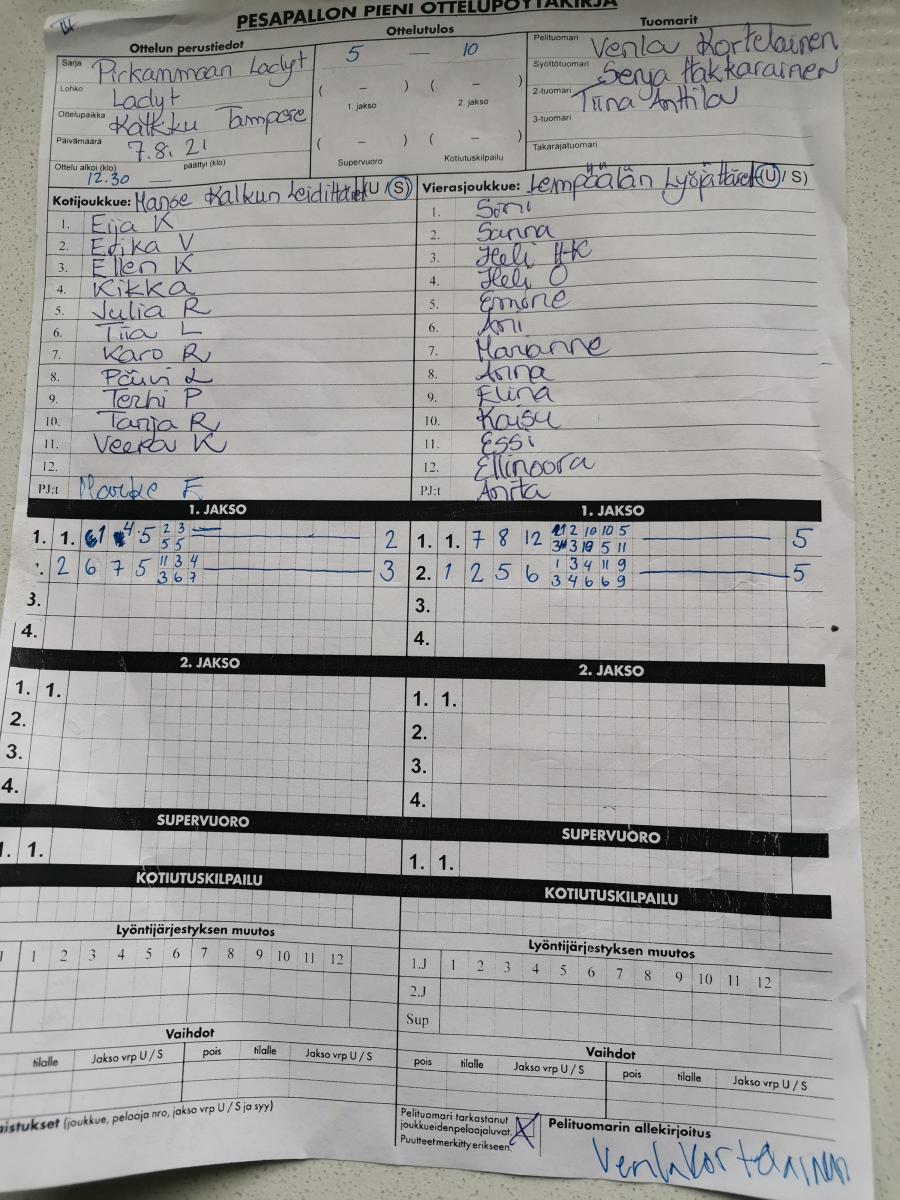 PESAPALLON PIENI OTTELUPÖYTÄKIRJA
Ottelun perustiedot
Ottelutulos
Tuomarit
Sarja Pirkanmaan Ladyt
Lohko Ladyt
Ottelupaikka Kalkku Tampere
Päivämäärä 7.8.21
Ottelu alkoi (klo) päättyi (klo)
12.30 —
5 — 10
( – ) ( – )
1. jakso 2. jakso
( – ) ( – )
Supervuoro Kotiutuskilpailu
Pelituomari Venla Kortelainen
Syöttötuomari Senja Hakkarainen
2-tuomari Tiina Anttila
3-tuomari
Takarajatuomari
Kotijoukkue: Manse Kalkun Leidittäret (U / S)
1. Eija K
2. Erika V
3. Ellen K
4. Kikka
5. Julia R
6. Tiia L
7. Karo R
8. Päivi L
9. Terhi P
10. Tanja R
11. Veera K
12.
PJ:t
Vierasjoukkue: Lempäälän Lyöjättäret (U / S)
1. Soni
2. Sanna
3. Heli H-K
4. Heli O
5. Emone
6. Ani
7. Marianne
8. Anna
9. Elina
10. Kaisu
11. Essi
12. Ellinoora
PJ:t Anita
1. JAKSO
1. 1. 5 2 3 2
5 5
2 6 7 5 11 3 4 3
3 6 7
3.
4.
1. JAKSO
1. 1. 7 8 12 2 10 10 5 5
3 5 11
2. 1 2 5 6 1 3 4 11 9 5
3 4 6 6 9
3.
4.
2. JAKSO
1. 1.
2.
3.
4.
2. JAKSO
1. 1.
2.
3.
4.
SUPERVUORO
1. 1.
SUPERVUORO
1. 1.
KOTIUTUSKILPAILU
KOTIUTUSKILPAILU
Lyöntijärjestyksen muutos
1 2 3 4 5 6 7 8 9 10 11 12
Lyöntijärjestyksen muutos
1.J 1 2 3 4 5 6 7 8 9 10 11 12
2.J
Sup
Vaihdot
tilalle Jakso vrp U / S pois tilalle Jakso vrp U / S
Vaihdot
pois tilalle Jakso vrp U / S pois tilalle Jakso vrp U / S
aistukset (joukkue, pelaaja nro, jakso vrp U / S ja syy)
Pelituomari tarkastanut
joukkueiden pelaajaluvat. X
Puutteet merkitty erikseen.
Pelituomarin allekirjoitus
Venla Kortelainen